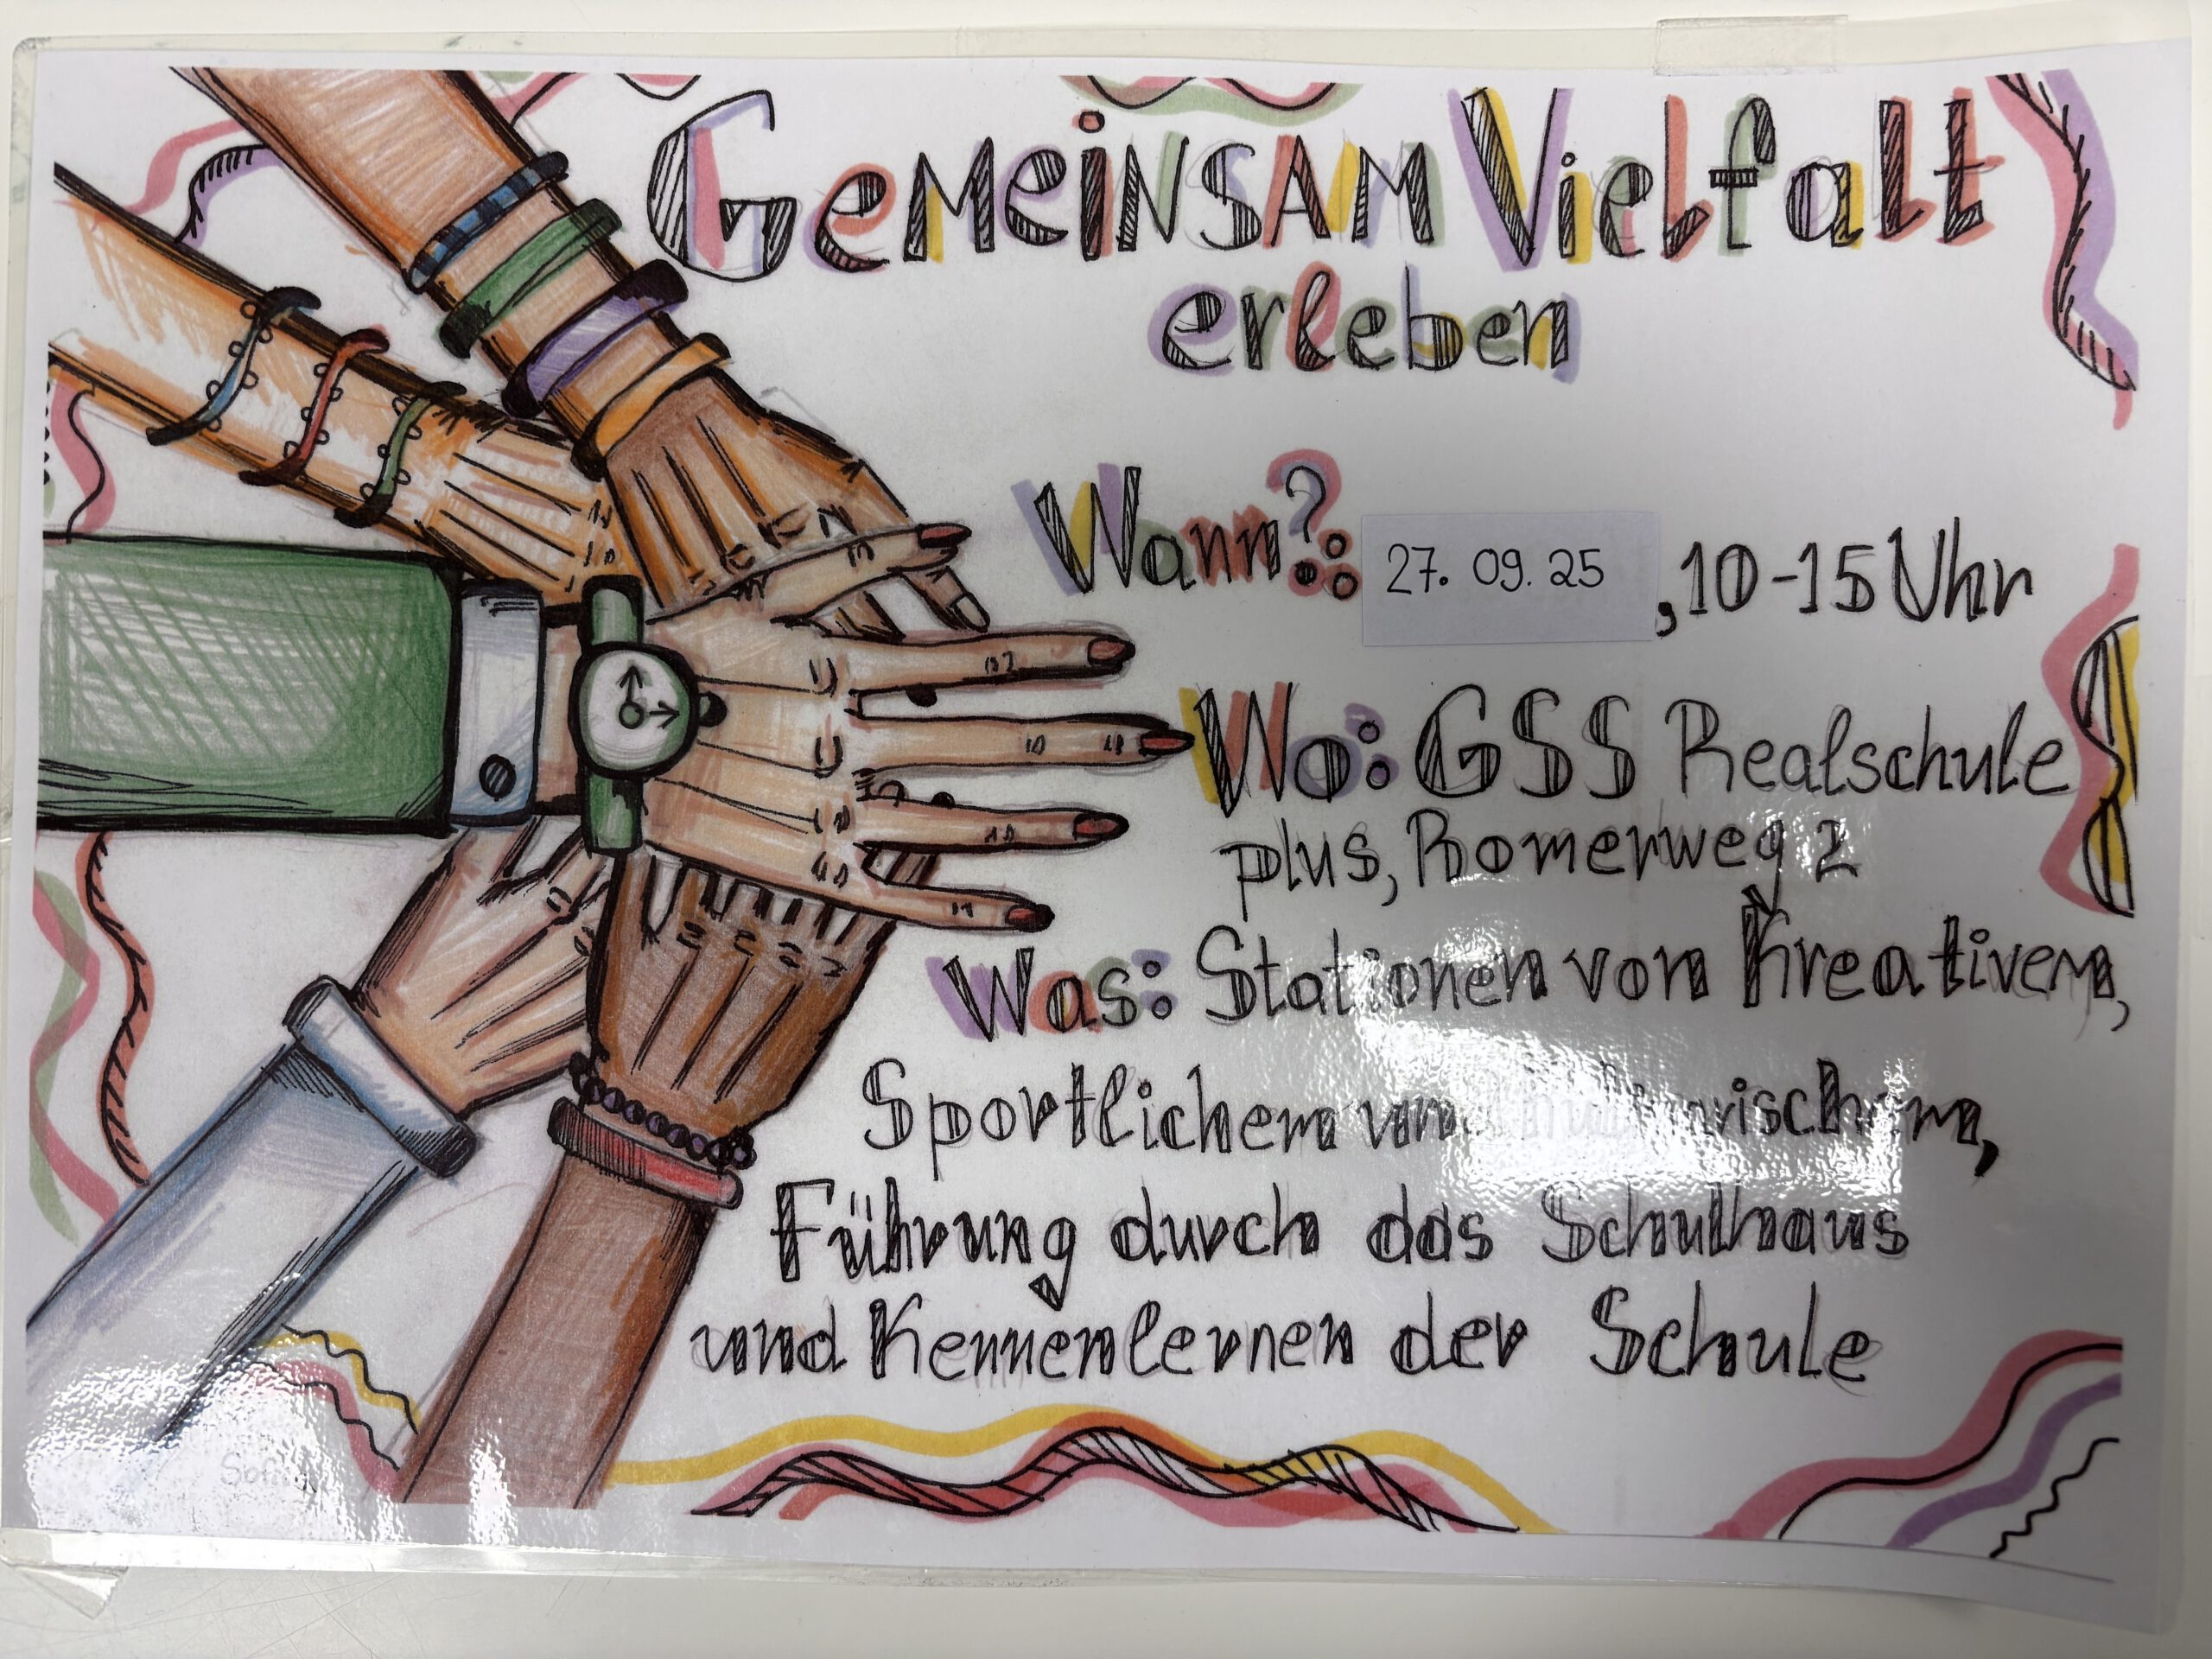 Gemeinsam Vielfalt
erleben
Wann?: 27. 09. 25, 10-15 Uhr
Wo: GSS Realschule
plus, Romerweg 2
Was: Stationen von Kreativem,
Sportlichem und
Führung durch das Schulhaus
und Kennenlernen der Schule